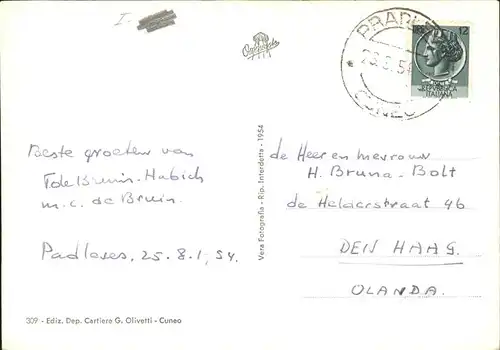 I.
PRADLE
23.8.54
CUNEO
12
REPVBBLICA
ITALIANA
Beste groeten van
F de Bruin-Habich
m.c. de Bruin.
Padleves, 25.8.1,54.
309 - Ediz. Dep. Cartiere G. Olivetti - Cuneo
Vera Fotografia - Rip. Interdetta - 1954
de Heer en mevrouw
H. Bruna-Bolt
de Helderstraat 46
DEN HAAG.
OLANDA.